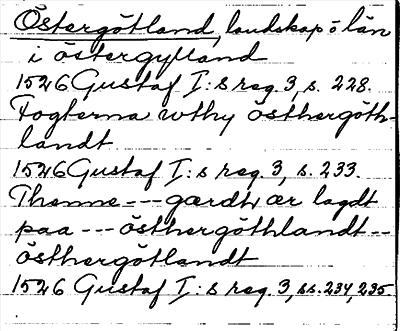 Östergötland, landskap o län
i östergylland
1526 Gustaf I:s reg. 3, s. 228.
Fogterna wthy östhergöth-
landt
1526 Gustaf I:s reg. 3, s. 233.
Thenne --- gærdh ær lagdt
paa --- östhergöthlandt --
östhergötlandt
1526 Gustaf I:s reg. 3, ss. 234, 235